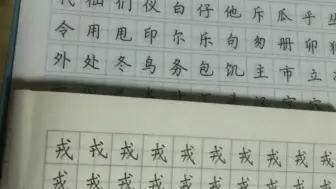 代仙们仪白仔他斥瓜乎丛
令用甩印尔乐句匆册卯
外处冬鸟务包饥主市立
戎戎戎戎戎戎戎戎戎戎
戎戎戎戎戎戎戎戎戎戎